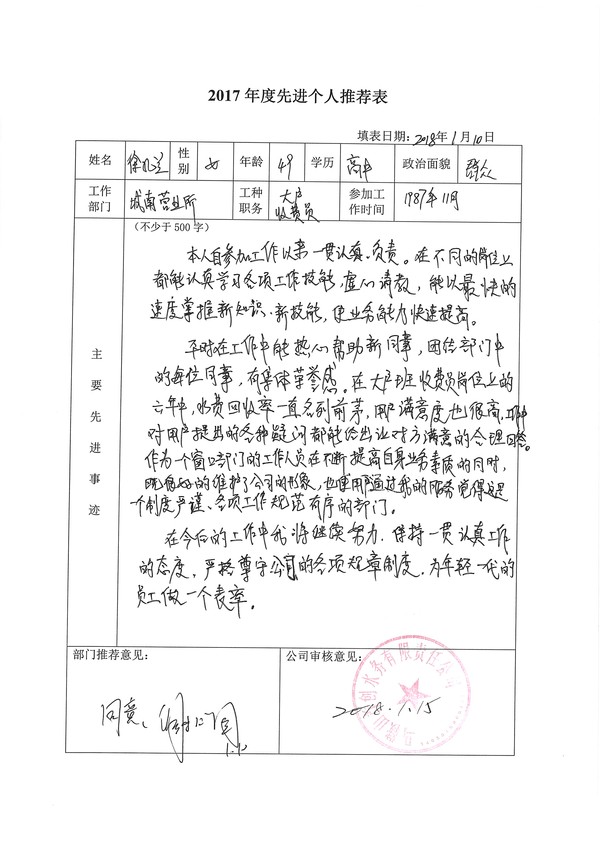 2017 年度先进个人推荐表
填表日期：2018年1月10日
姓名 徐 性别 女 年龄 49 学历 高中 政治面貌 群众
工作部门 城南营业所 工种职务 大户收费员 参加工作时间 1987年11月
（不少于 500 字）
主要先进事迹
本人自参加工作以来一贯认真、负责。在不同的岗位上
都能认真学习各项工作技能，虚心请教，能以最快的
速度掌握新知识、新技能，使业务能力快速提高。
平时在工作中能热心帮助新同事，团结部门中
的每位同事，有集体荣誉感。在大户班收费员岗位上的
六年中，水费回收率一直名列前茅，用户满意度也很高，工作中
对用户提出的各种疑问都能给出让对方满意的合理回答。
作为一个窗口部门的工作人员在不断提高自身业务素质的同时，
好的维护了公司的形象，也使用户通过我的服务觉得这是
个制度严谨、各项工作规范有序的部门。
在今后的工作中我将继续努力，保持一贯认真工作
的态度，严格遵守公司的各项规章制度，为年轻一代的
员工做一个表率。
部门推荐意见：
同意、
1.10
公司审核意见：
创水务有限责任公司
2018.1.15